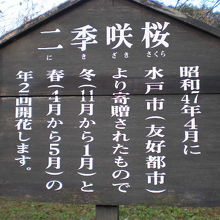 二季咲桜
にきざきさくら
昭和47年4月に
水戸市(友好都市)
より寄贈されたもので
冬(11月から1月)と
春(4月から5月)の
年2回開花します。